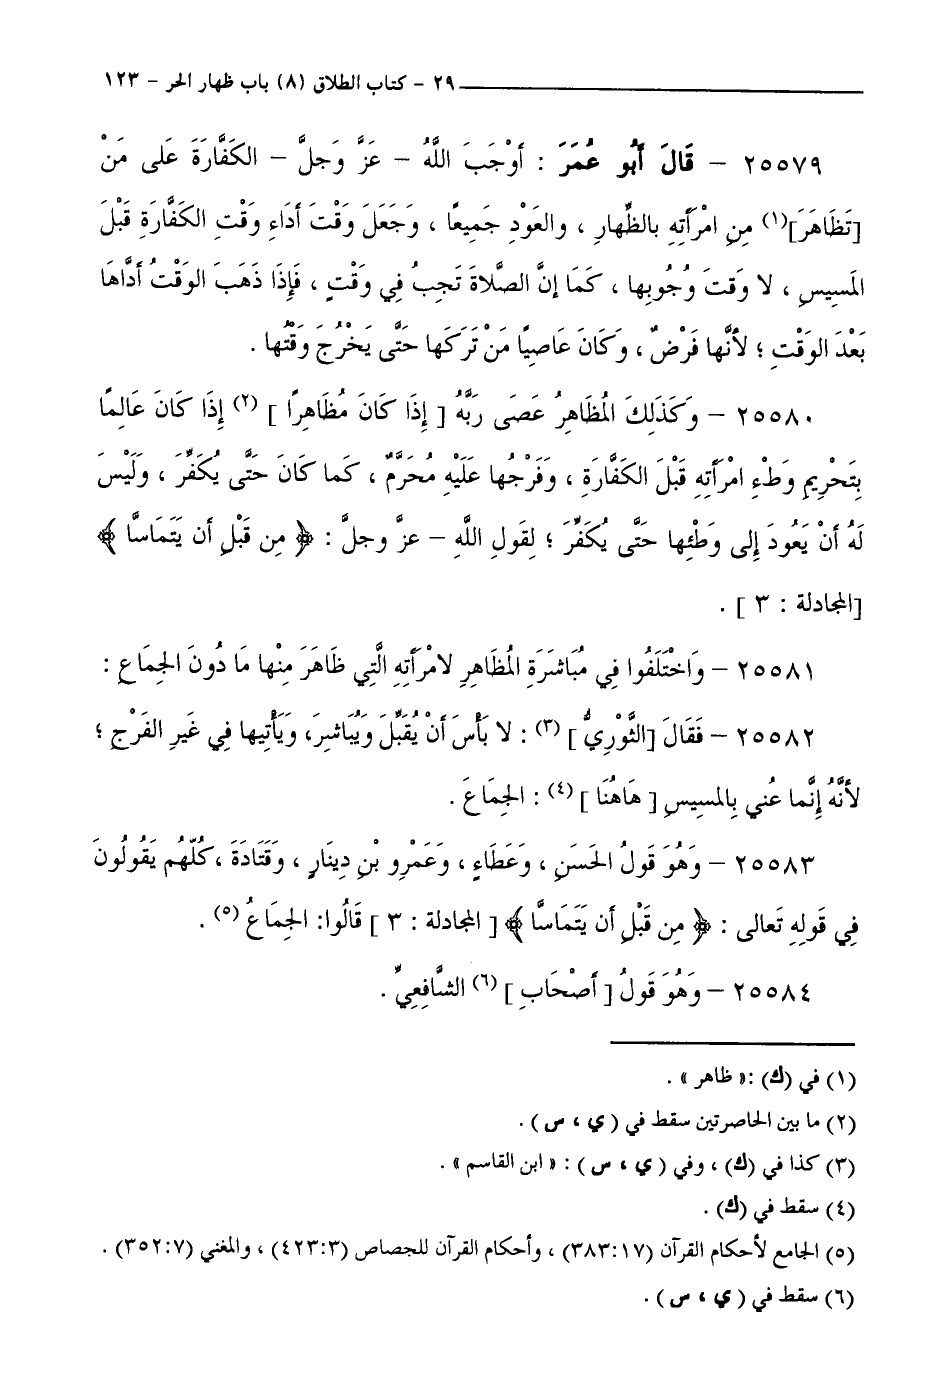 ٢٩ - كتاب الطلاق (٨) باب ظهار الحر - ١٢٣
٢٥٥٧٩ - قَالَ أَبُو عُمَرَ : أَوْجَبَ اللَّهُ - عَزَّ وَجلَّ - الكَفَّارَةَ عَلى مَنْ
[تَظَاهَرَ](١) مِنِ امْرَأَتِهِ بالظِّهارِ ، والعَوْدِ جَمِيعًا ، وَجَعَلَ وَقْتَ أَدَاءِ وَقْتِ الكَفَّارَةِ قَبْلَ
المَسِيسِ ، لا وَقتَ وُجُوبِها ، كَمَا إنَّ الصَّلاةَ تَجِبُ فِي وَقْتٍ ، فَإِذَا ذَهَبَ الوَقْتُ أَدَّاهَا
بَعْدَ الوَقْتِ ؛ لأنَّها فَرْضٌ ، وَكَانَ عَاصِيًا مَنْ تَرَكَها حَتَّى يَخْرُجَ وَقْتُها .
٢٥٥٨٠ - وَكَذَلِكَ المُظَاهِرُ عَصَى رَبَّهُ [ إِذَا كَانَ مُظَاهِرًا ] (٢) إِذَا كَانَ عَالِمًا
بِتَحْرِيمِ وَطْءِ امْرَأَتِهِ قَبْلَ الكَفَّارَةِ ، وَفَرْجُها عَلَيْهِ مُحَرَّمٌ ، كَما كَانَ حَتَّى يُكَفِّرَ ، وَلَيْسَ
لَهُ أَنْ يَعُودَ إِلى وَطْئِها حَتَّى يُكَفِّرَ ؛ لِقَولِ اللَّهِ - عزَّ وجلَّ : ﴿ مِن قَبْلِ أَن يَتَمَاسَّا ﴾
[المجادلة : ٣ ] .
٢٥٥٨١ - وَاخْتَلَفُوا فِي مُبَاشَرَةِ المُظَاهِرِ لامْرَأَتِهِ الَّتِي ظَاهَرَ مِنْها مَا دُونَ الجِمَاعِ :
٢٥٥٨٢ - فَقَالَ [الثَّوْرِيُّ ] (٣) : لا بَأْسَ أَنْ يُقَبِّلَ وَيُبَاشِرَ، وَيَأْتِيها فِي غَيرِ الفَرْجِ ؛
لأَنَّهُ إِنَّما عُنِي بِالمسِيسِ [ هَاهُنَا ] (٤) : الجِمَاعَ .
٢٥٥٨٣ - وَهُوَ قَولُ الحَسَنِ ، وَعَطَاءٍ ، وَعَمْرِو بْنِ دِينَارٍ ، وَقَتَادَةَ ،كُلُّهُم يَقُولُونَ
فِي قَولِهِ تَعالى : ﴿ مِن قَبْلِ أَن يَتَمَاسَّا ﴾ [ المجادلة : ٣ ] قَالُوا: الجِمَاعُ (٥) .
٢٥٥٨٤ - وَهُوَ قَولُ [ أَصْحَابِ ] (٦) الشَّافِعِيِّ .
(١) في (ك) :« ظاهر » .
(٢) ما بين الحاصرتين سقط في ( ي ، س ) .
(٣) كذا في (ك) ، وفي ( ي ، س ) : « ابن القاسم » .
(٤) سقط في (ك) .
(٥) الجامع لأحكام القرآن (١٧:٣٨٣) ، وأحكام القرآن للجصاص (٣:٤٢٣) ، والمغني (٧:٣٥٢) .
(٦) سقط في ( ي ، س ) .